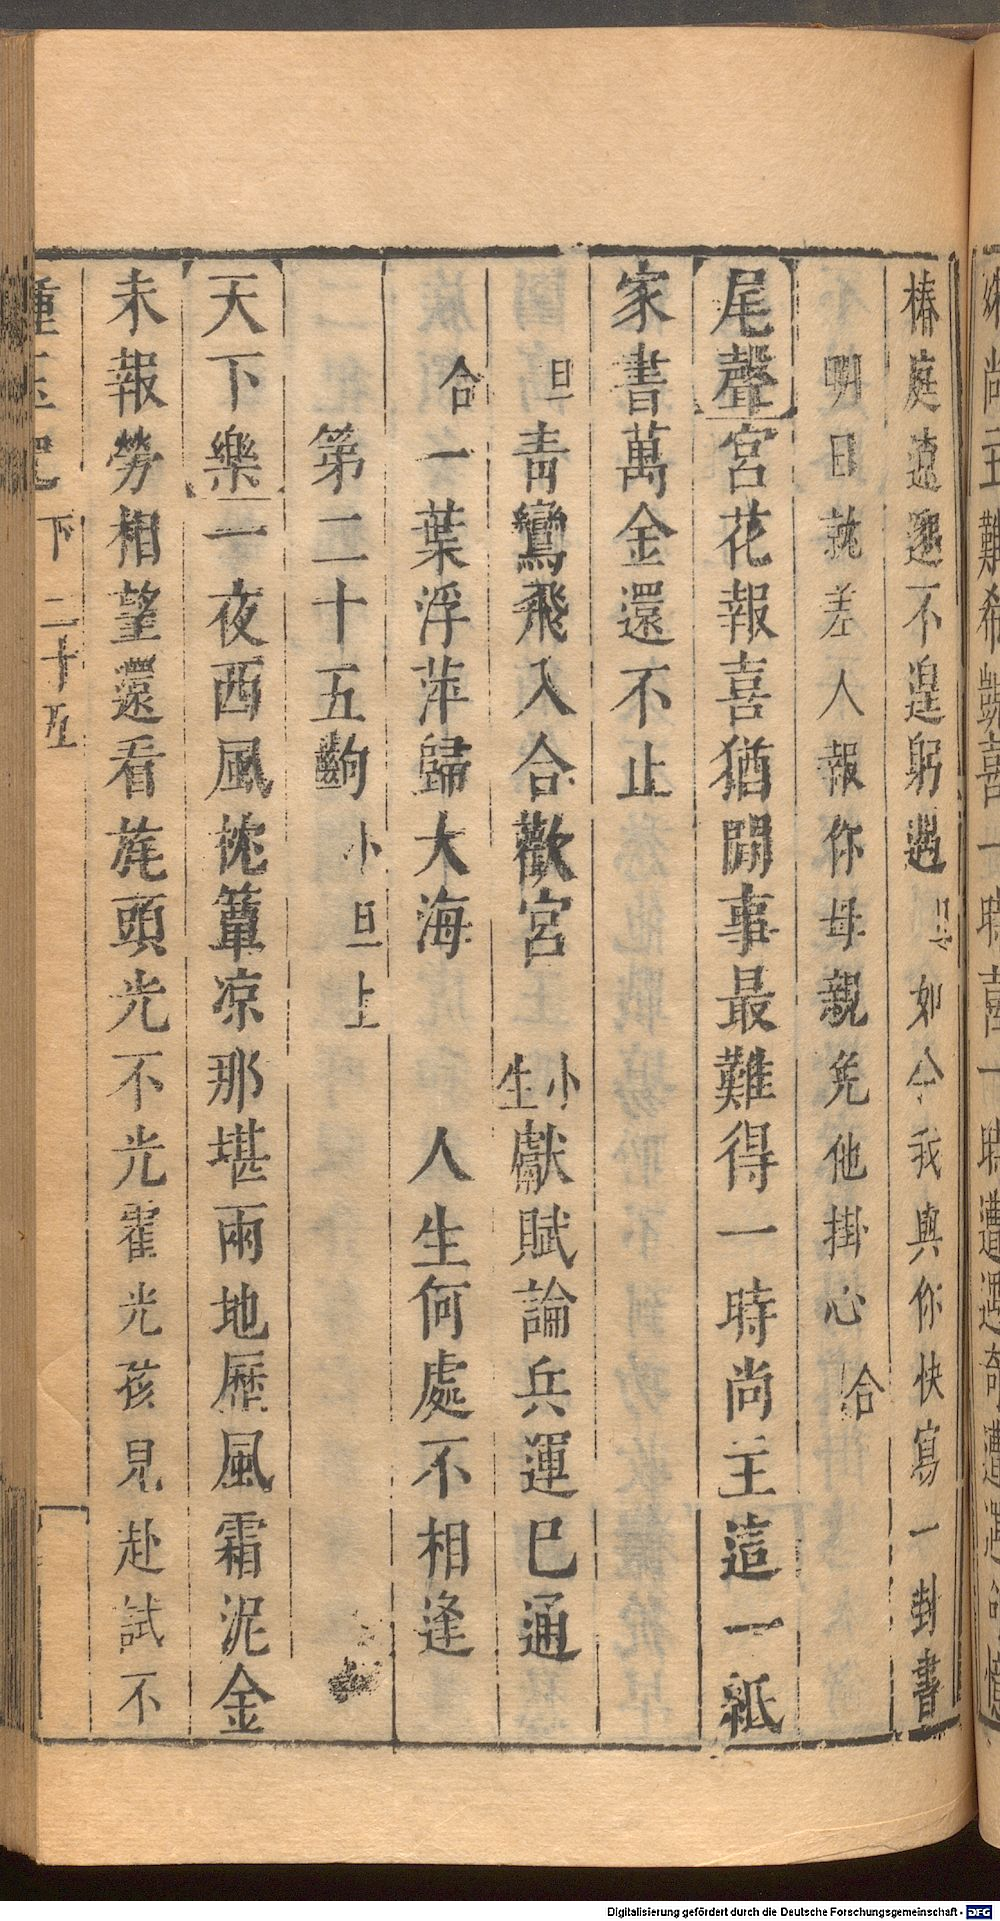 椿庭遠邈不遑躬遇旦如今我與你快寫一封書
明日就差人報你母親免他掛心合
尾聲宮花報喜猶閒事最難得一時尚主這一紙
家書萬金還不止
旦青鸞飛入合歡宮 小生獻賦論兵運已通
合一葉浮萍歸大海 人生何處不相逢
第二十五齣 小旦上
天下樂一夜西風枕簟凉那堪兩地歷風霜泥金
未報勞相望還看旄頭光不光霍光孩兒赴試不
種玉記 下 二十五
Digitalisierung gefördert durch die Deutsche Forschungsgemeinschaft - DFG